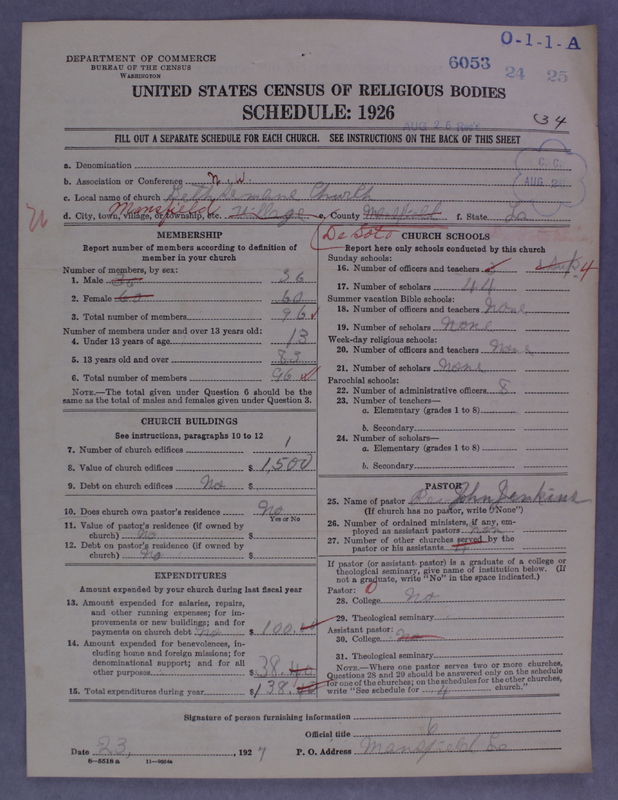 O-1-1-A
DEPARTMENT OF COMMERCE
BUREAU OF THE CENSUS
WASHINGTON
6053
24 25
UNITED STATES CENSUS OF RELIGIOUS BODIES
SCHEDULE: 1926
AUG 26 Rec'd
34
FILL OUT A SEPARATE SCHEDULE FOR EACH CHURCH. SEE INSTRUCTIONS ON THE BACK OF THIS SHEET
C. C.
AUG 28
a. Denomination
b. Association or Conference N. W.
c. Local name of church Church
d. City, town, village, or township, etc. Mansfield village e. County Mansfield f. State La
De Soto
MEMBERSHIP
Report number of members according to definition of
member in your church
Number of members, by sex:
1. Male 36 36
2. Female 60 60
3. Total number of members 96
Number of members under and over 13 years old:
4. Under 13 years of age 13
5. 13 years old and over 83
6. Total number of members 96
NOTE.—The total given under Question 6 should be the
same as the total of males and females given under Question 3.
CHURCH BUILDINGS
See instructions, paragraphs 10 to 12
7. Number of church edifices 1
8. Value of church edifices $ 1,500
9. Debt on church edifices No $
10. Does church own pastor's residence No
Yes or No
11. Value of pastor's residence (if owned by
church) No $
12. Debt on pastor's residence (if owned by
church) No $
EXPENDITURES
Amount expended by your church during last fiscal year
13. Amount expended for salaries, repairs,
and other running expenses; for im-
provements or new buildings; and for
payments on church debt no $ 100.
14. Amount expended for benevolences, in-
cluding home and foreign missions; for
denominational support; and for all
other purposes $ 38.40
15. Total expenditures during year $ 138.40
CHURCH SCHOOLS
Report here only schools conducted by this church
Sunday schools:
16. Number of officers and teachers 4
17. Number of scholars 44
Summer vacation Bible schools:
18. Number of officers and teachers None
19. Number of scholars None
Week-day religious schools:
20. Number of officers and teachers None
21. Number of scholars None
Parochial schools:
22. Number of administrative officers 8
23. Number of teachers—
a. Elementary (grades 1 to 8)
b. Secondary
24. Number of scholars—
a. Elementary (grades 1 to 8)
b. Secondary
PASTOR
25. Name of pastor Rev John Jenkins
(If church has no pastor, write "None")
26. Number of ordained ministers, if any, em-
ployed as assistant pastors non
27. Number of other churches served by the
pastor or his assistants 4
If pastor (or assistant pastor) is a graduate of a college or
theological seminary, give name of institution below. (If
not a graduate, write "No" in the space indicated.)
Pastor: 0
28. College No
29. Theological seminary
Assistant pastor:
30. College no
31. Theological seminary
NOTE.—Where one pastor serves two or more churches,
Questions 28 and 29 should be answered only on the schedule
for one of the churches; on the schedules for the other churches,
write "See schedule for 4 church."
Signature of person furnishing information
Official title
Date 23, 1927 P. O. Address Mansfield La
8—5518 a 11—9914a